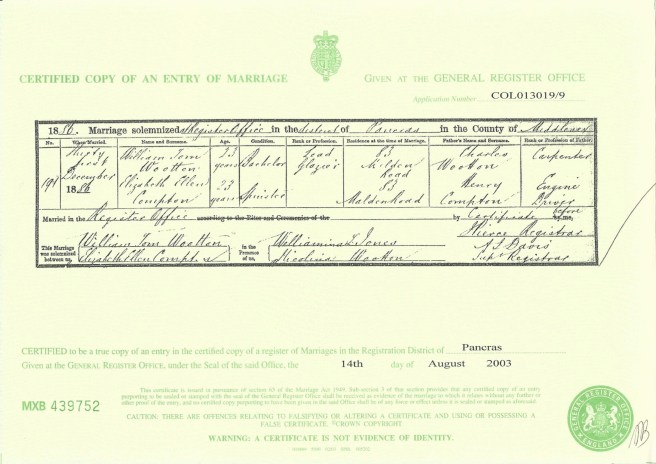 CERTIFIED COPY OF AN ENTRY OF MARRIAGE
GIVEN AT THE GENERAL REGISTER OFFICE
Application Number COL013019/9
1886. Marriage solemnized Register Office in the district of Pancras in the County of Middlesex
No. When Married. Name and Surname. Age. Condition. Rank or Profession. Residence at the time of Marriage. Father's Name and Surname. Rank or Profession of Father.
Thirty first December 1886 William Tom Wootton 23 years Bachelor Lead Glazier 53 Malden Road Charles Wootton Carpenter
Elizabeth Ellen Compton 23 years Spinster 53 Malden Road Henry Compton Engine Driver
Married in the Register Office according to the Rites and Ceremonies of the by Certificate before by me,
This Marriage was solemnized between us, William Tom Wootton Elizabeth Ellen Compton
in the Presence of us, Jones Wootton
Registrar
Davis
Sup Registrar
CERTIFIED to be a true copy of an entry in the certified copy of a register of Marriages in the Registration District of Pancras
Given at the GENERAL REGISTER OFFICE, under the Seal of the said Office, the 14th day of August 2003
MXB 439752
This certificate is issued in pursuance of section 65 of the Marriage Act 1949. Sub-section 3 of that section provides that any certified copy of an entry
purporting to be sealed or stamped with the seal of the General Register Office shall be received as evidence of the marriage to which it relates without any further or
other proof of the entry, and no certified copy purporting to have been given in the said Office shall be of any force or effect unless it is sealed or stamped as aforesaid.
CAUTION: THERE ARE OFFENCES RELATING TO FALSIFYING OR ALTERING A CERTIFICATE AND USING OR POSSESSING A
FALSE CERTIFICATE. ©CROWN COPYRIGHT
WARNING: A CERTIFICATE IS NOT EVIDENCE OF IDENTITY.
GENERAL REGISTER OFFICE
ENGLAND